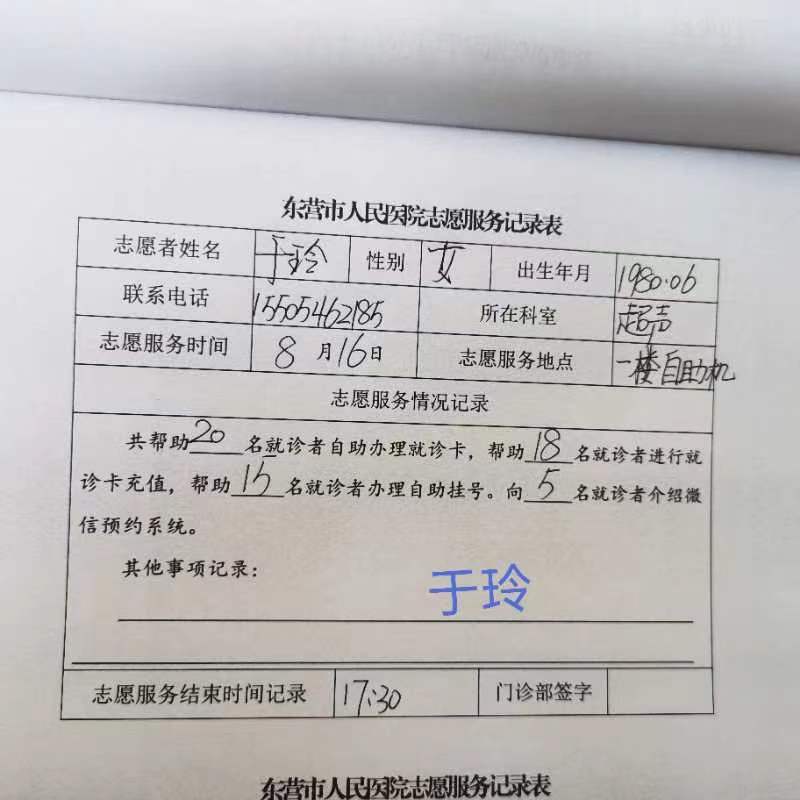 东营市人民医院志愿服务记录表
志愿者姓名 于玲 性别 女 出生年月 1980.06
联系电话 15505462185 所在科室 超声
志愿服务时间 8月16日 志愿服务地点 一楼自助机
志愿服务情况记录
共帮助20名就诊者自助办理就诊卡，帮助18名就诊者进行就
诊卡充值，帮助15名就诊者办理自助挂号。向5名就诊者介绍微
信预约系统。
其他事项记录：
于玲
志愿服务结束时间记录 17:30 门诊部签字
东营市人民医院志愿服务记录表